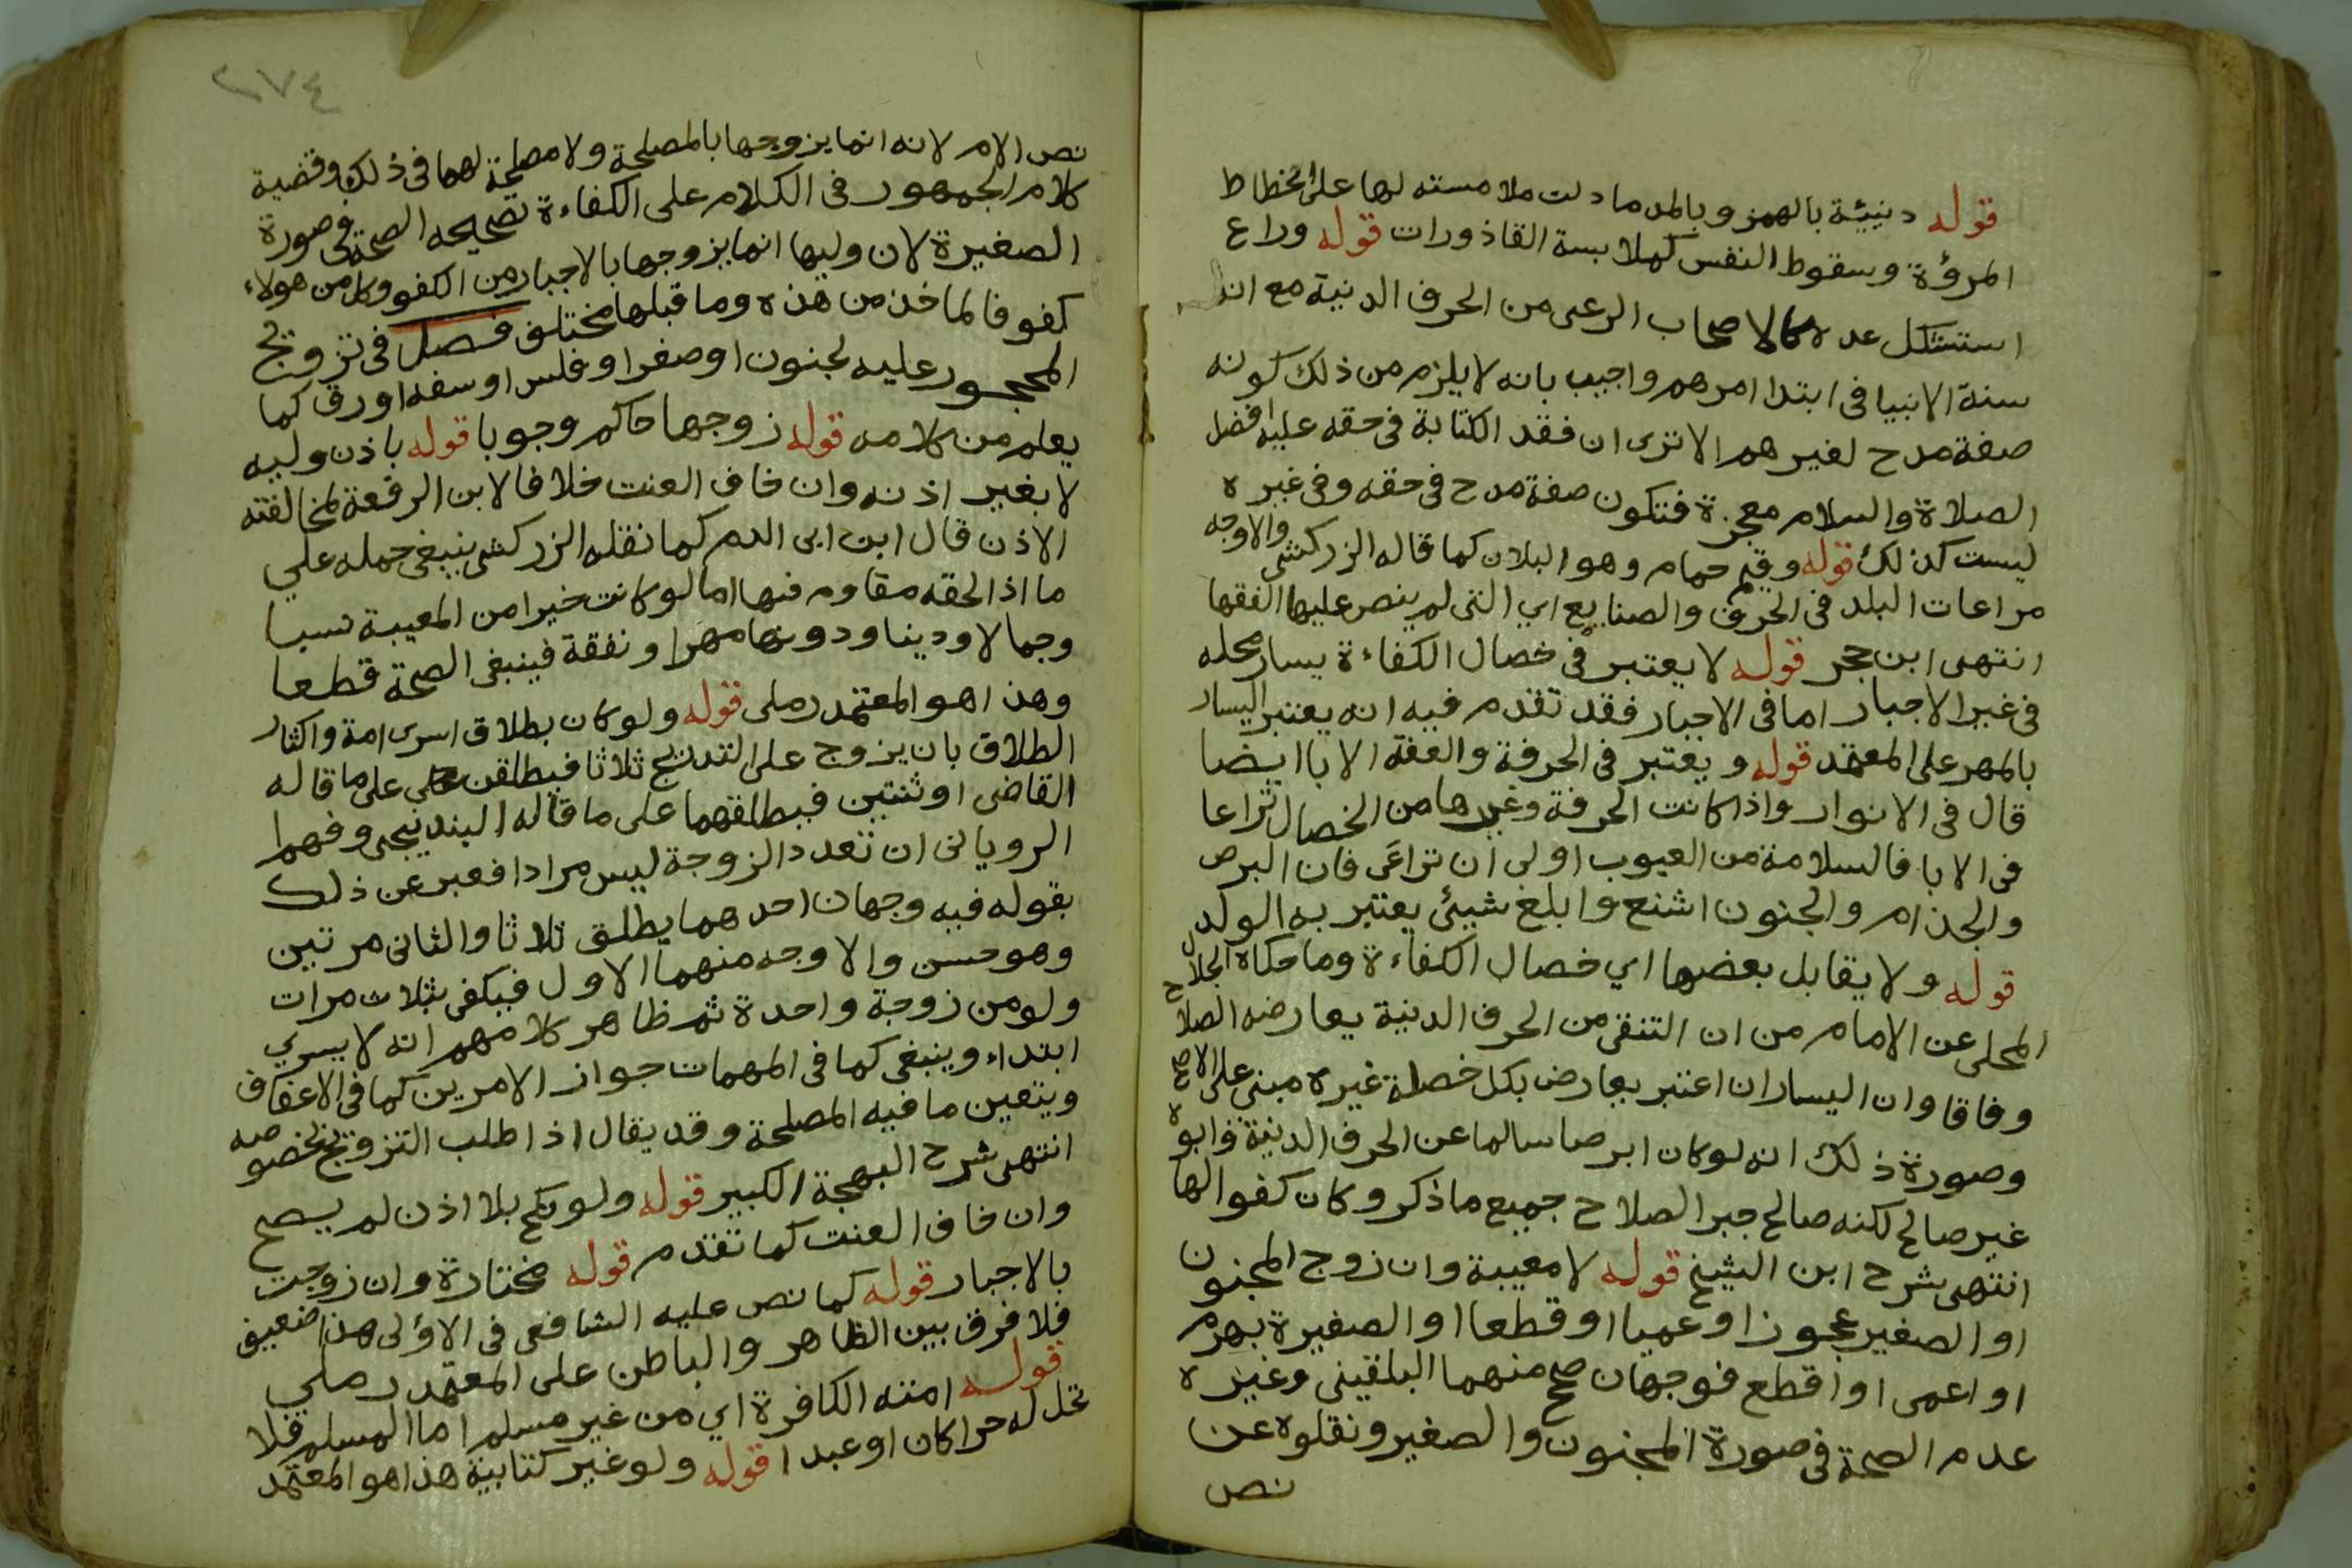 قوله دنيئة بالهمز وبالمد ما دلت ملامسته لها على انحطاط
المرؤة وسقوط النفس كملابسة القاذورات قوله وراع
استشكل عده كالاصحاب الرعى من الحرف الدنية مع انه
سنة الانبيا فى ابتدا امرهم واجيب بانه لا يلزم من ذلك كونه
صفة مدح لغيرهم الا ترى ان فقد الكتابة فى حقه عليه افضل
الصلاة والسلام معجزة فتكون صفة مدح فى حقه وفى غيره
ليست كذلك قوله وقيم حمام وهو البلان كما قاله الزركشى والاوجه
مراعات البلد فى الحرف والصنايع اي التى لم ينص عليها الفقها
انتهى ابن حجر قوله لا يعتبر فى خصال الكفاءة يسار محله
فى غير الاجبار اما فى الاجبار فقد تقدم فيه انه يعتبر اليسار
بالمهر على المعتمد قوله ويعتبر فى الحرفة والعفة الابا ايضا
قال فى الانوار واذا كانت الحرفة وغيرها من الخصال تراعا
فى الابا فالسلامة من العيوب اولى ان تراعى فان البرص
والجذام والجنون اشنع وابلغ شيئ يعتبر به الولد
قوله ولا يقابل بعضها اي خصال الكفاءة وما حكاه الجلال
المحلى عن الامام من ان التنقى من الحرف الدنية يعارضه الصلاح
وفاقا وان اليسار ان اعتبر يعارض بكل خصلة غيره مبنى على الاصح
وصورة ذلك انه لو كان ابرصا سالما عن الحرف الدنية وابوه
غير صالح لكنه صالح جبر الصلاح جميع ما ذكر وكان كفوا لها
انتهى شرح ابن الشيخ قوله لا معيبة وان زوج المجنون
او الصغير عجوزا او عميا او قطعا او الصغيرة بهرم
او اعمى او اقطع فوجهان صح منهما البلقينى وغيره
عدم الصحة فى صورة المجنون والصغير ونقلوه عن
نص
٢٧٤
نص الام لانه انما يزوجها بالمصلحة ولا مصلحة لهما فى ذلك وقضية
كلام الجمهور فى الكلام على الكفاءة تصحيحه الصحة فى صورة
الصغيرة لان وليها انما يزوجها بالاجبار من الكفو وكل من هولاء
كفو فالماخذ من هذه وما قبلها مختلف فصل فى تزويج
المحجور عليه لجنون او صغر او فلس او سفه او رق كما
يعلم من كلامه قوله زوجها حاكم وجوبا قوله باذن وليه
لا بغير اذنه وان خاف العنت خلافا لابن الرفعة لمخالفته
الاذن قال ابن ابى الدم كما نقله الزركشى ينبغى حمله علي
ما اذا لحقه مقاوم فنها اما لو كانت خيرا من المعيبة نسبا
وجمالا ودينا ودونها مهرا ونفقة فينبغى الصحة قطعا
وهذا هو المعتمد رملى قوله ولو كان بطلاق اسرى امة واكثار
الطلاق بان يزوج على التدريج ثلاثا فيطلقن على ما قاله
القاضى او ثنتين فيطلقهما على ما قاله البندنيجى وفهم
الرويانى ان تعدد الزوجة ليس مرادا فعبر عن ذلك
بقوله فيه وجهان احدهما يطلق ثلاثا والثانى مرتين
وهو حسن والاوجه منهما الاول فيكفى بثلاث مرات
ولو من زوجة واحدة ثم ظاهر كلامهم انه لا يسري
ابتداء وينبغى كما فى المهمات جواز الامرين كما فى الاعفاف
ويتعين ما فيه المصلحة وقد يقال اذا طلب التزويج بخصوصه
انتهى شرح البهجة الكبير قوله ولو نكح بلا اذن لم يصح
وان خاف العنت كما تقدم قوله مختارة وان زوجت
بالاجبار قوله كما نص عليه الشافعى فى الاؤلى هذا ضعيف
فلا فرق بين الظاهر والباطن على المعتمد رملي
قوله امته الكافرة اي من غير مسلم اما المسلم فلا
تحل له حرا كان او عبدا قوله ولو غير كتابية هذا هو المعتمد